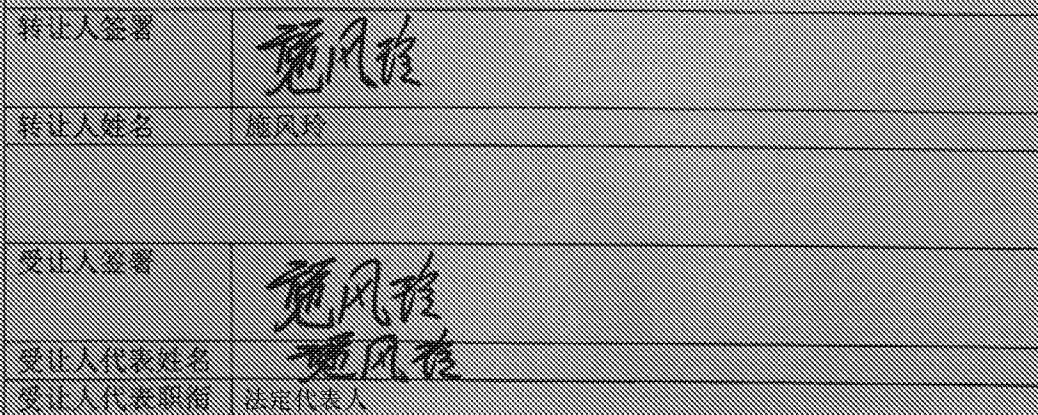 转让人签署 施风玲
转让人姓名 施风玲
受让人签署 施风玲
受让人代表姓名 施风玲
受让人代表职衔 法定代表人